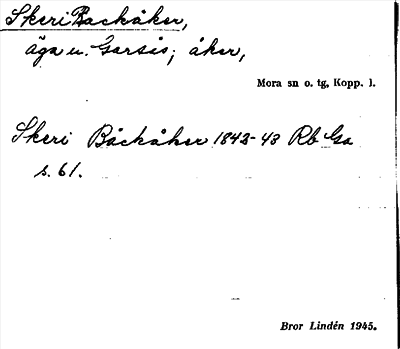 Skeri Backåker,
äga u. Garsås; åker,
Mora sn o. tg, Kopp. l.
Skeri Båckåker 1843-43 Rb Ga
s. 61.
Bror Lindén 1945.